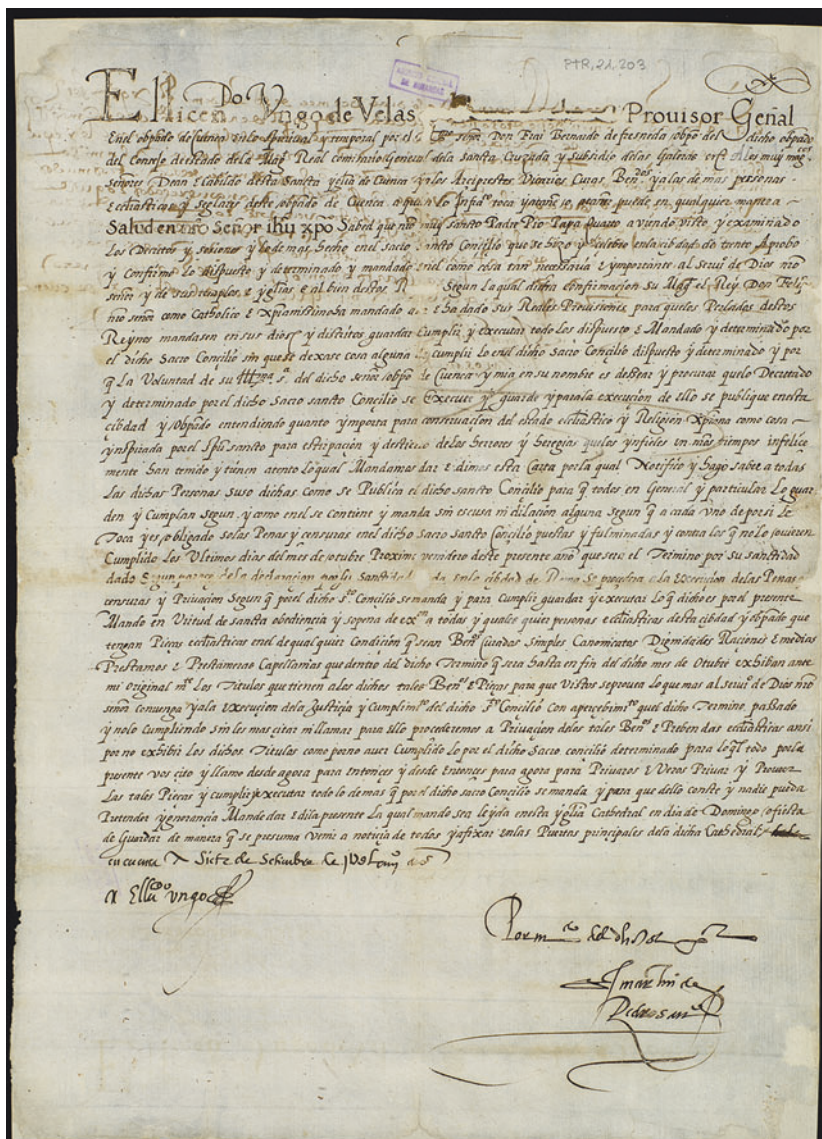 PTR, 21, 203
El licen.do Vngo de Velas Prouisor Geñal
En el obpado de Cuenca en lo spiritual y temporal por el señor Don Frai Bernardo de fresneda obpo del dicho obpado
del Consejo de estado de la Mag. Real comisario General de la sancta Cruzada y subsidio de las Galeras A los muy
señores Dean e Cabildo desta Sancta yglia de Cuenca y a los Arciprestes Vicarios Curas Ben.dos y a las de mas personas
ecclásticas y seglares deste obpado de Cuenca a quien lo toca y atañe puede en qualquier manera
Salud en nro Señor ihu xpo Sabed que nro muy sancto Padre Pio Papa quarto aviendo visto y examinado
Los Decretos y sesiones y lo demas hecho en el sacro sancto Concilio que se hizo y celebro en la cibdad de trento Aprobo
y Confirmo lo dispuesto y determinado y mandado en el como cosa tan necessaria e ymportante al serui.o de Dios nro
señor y de sus templos e yglias e al bien destos Segun la qual dicha confirmacion su Mag. el Rey Don
nro señor como Catholico e mandado e ha dado sus Reales Prouisiones para que los Perlados destos
Reynos mandasen en sus y distritos guardar Cumplir y executar todo lo dispuesto e Mandado y determinado por
el dicho Sacro Concilio sin que se dexase cosa alguna de cumplir lo en el dicho Sacro Concilio dispuesto y determinado y por
q La Voluntad de su Illma s.a del dicho señor obpo de Cuenca y mia en su nombre es dessear y procurar que lo Decretado
y determinado por el dicho Sacro sancto Concilio se Execute y guarde y para la execucion de ello se publique en esta
cibdad y Obpado entendiendo quanto ymporta para conseruacion del estado ecclástico y Religion Xpiana como cosa
ynspirada por el Spu sancto para estirpacion y destierro de los herrores y heregias que los ynfieles en nros tiempos infelice
mente han tenido y tienen atento lo qual Mandamos dar e dimos esta Carta por la qual Notifico y hago saber a todas
Las dichas Personas suso dichas como se Publica el dicho sancto Concilio para q todos en General y particular Lo guar
den y Cumplan segun y como en el se contiene y manda sin escusa ni dilacion alguna segun q a cada vno de por si le
Toca y es obligado so las Penas y censuras en el dicho Sacro sancto Concilio puestas y fulminadas y contra los q no lo ouieren
Cumplido los Vltimos dias del mes de otubre Proximo venidero deste presente año que sera el Termino por su sanctidad
dado Segun parece de la declaracion por su Sanctidad en la cibdad de Roma se procedera a la execucion de las Penas
censuras y Priuacion Segun q por el dicho s.to Concilio se manda y para Cumplir guardar y executar lo q dicho es por el presente
Mando en Virtud de sancta obediencia y sopena de a todas y quales quier personas ecclasticas desta cibdad y obpado que
tengan Pieças ecclasticas en el de qual quier condicion q sean Ben.os Curados simples Canonicatos Dignidades Raciones e medias
Prestamos e Prestameras Capellanias que dentro del dicho Termino q sera hasta en fin del dicho mes de Otubre exhiban ante
mi Original m.te Los Titulos que tienen a los dichos tales Ben.os e Pieças para que Vistos se prouea lo que mas al serui.o de Dios nro
señor conuenga y a la execucion de la Justicia y Cumplim.to del dicho S.to Concilio Con apercebimi.to quel dicho Termino passado
y no lo cumpliendo sin les mas citar ni llamar para ello procederemos a Priuacion de los tales Ben.os e Prebendas ecclasticas ansi
por no exhibir los dichos Titulos como por no auer Cumplido lo por el dicho Sacro concilio determinado para lo ql todo por la
presente vos cito y llamo desde agora para entonçes y desde Entonçes para agora para Priuaros e Veros Priuar y Proueer
Las tales Pieças y cumplir y executar todo lo demas q por el dicho sacro Concilio se manda y para que dello conste y nadie pueda
Pretender ygnorancia Mande dar e di la presente La qual mando sea leyda en esta yglia Cathedral en dia de Domingo o fiesta
de Guardar de manera q se presuma venir a noticia de todos y afixar en las Puertas principales de la dicha Cathedral
en cuenca A Siete de Setiembre de
El licen.do Vngo
Por m.do del dho s.or
martin de